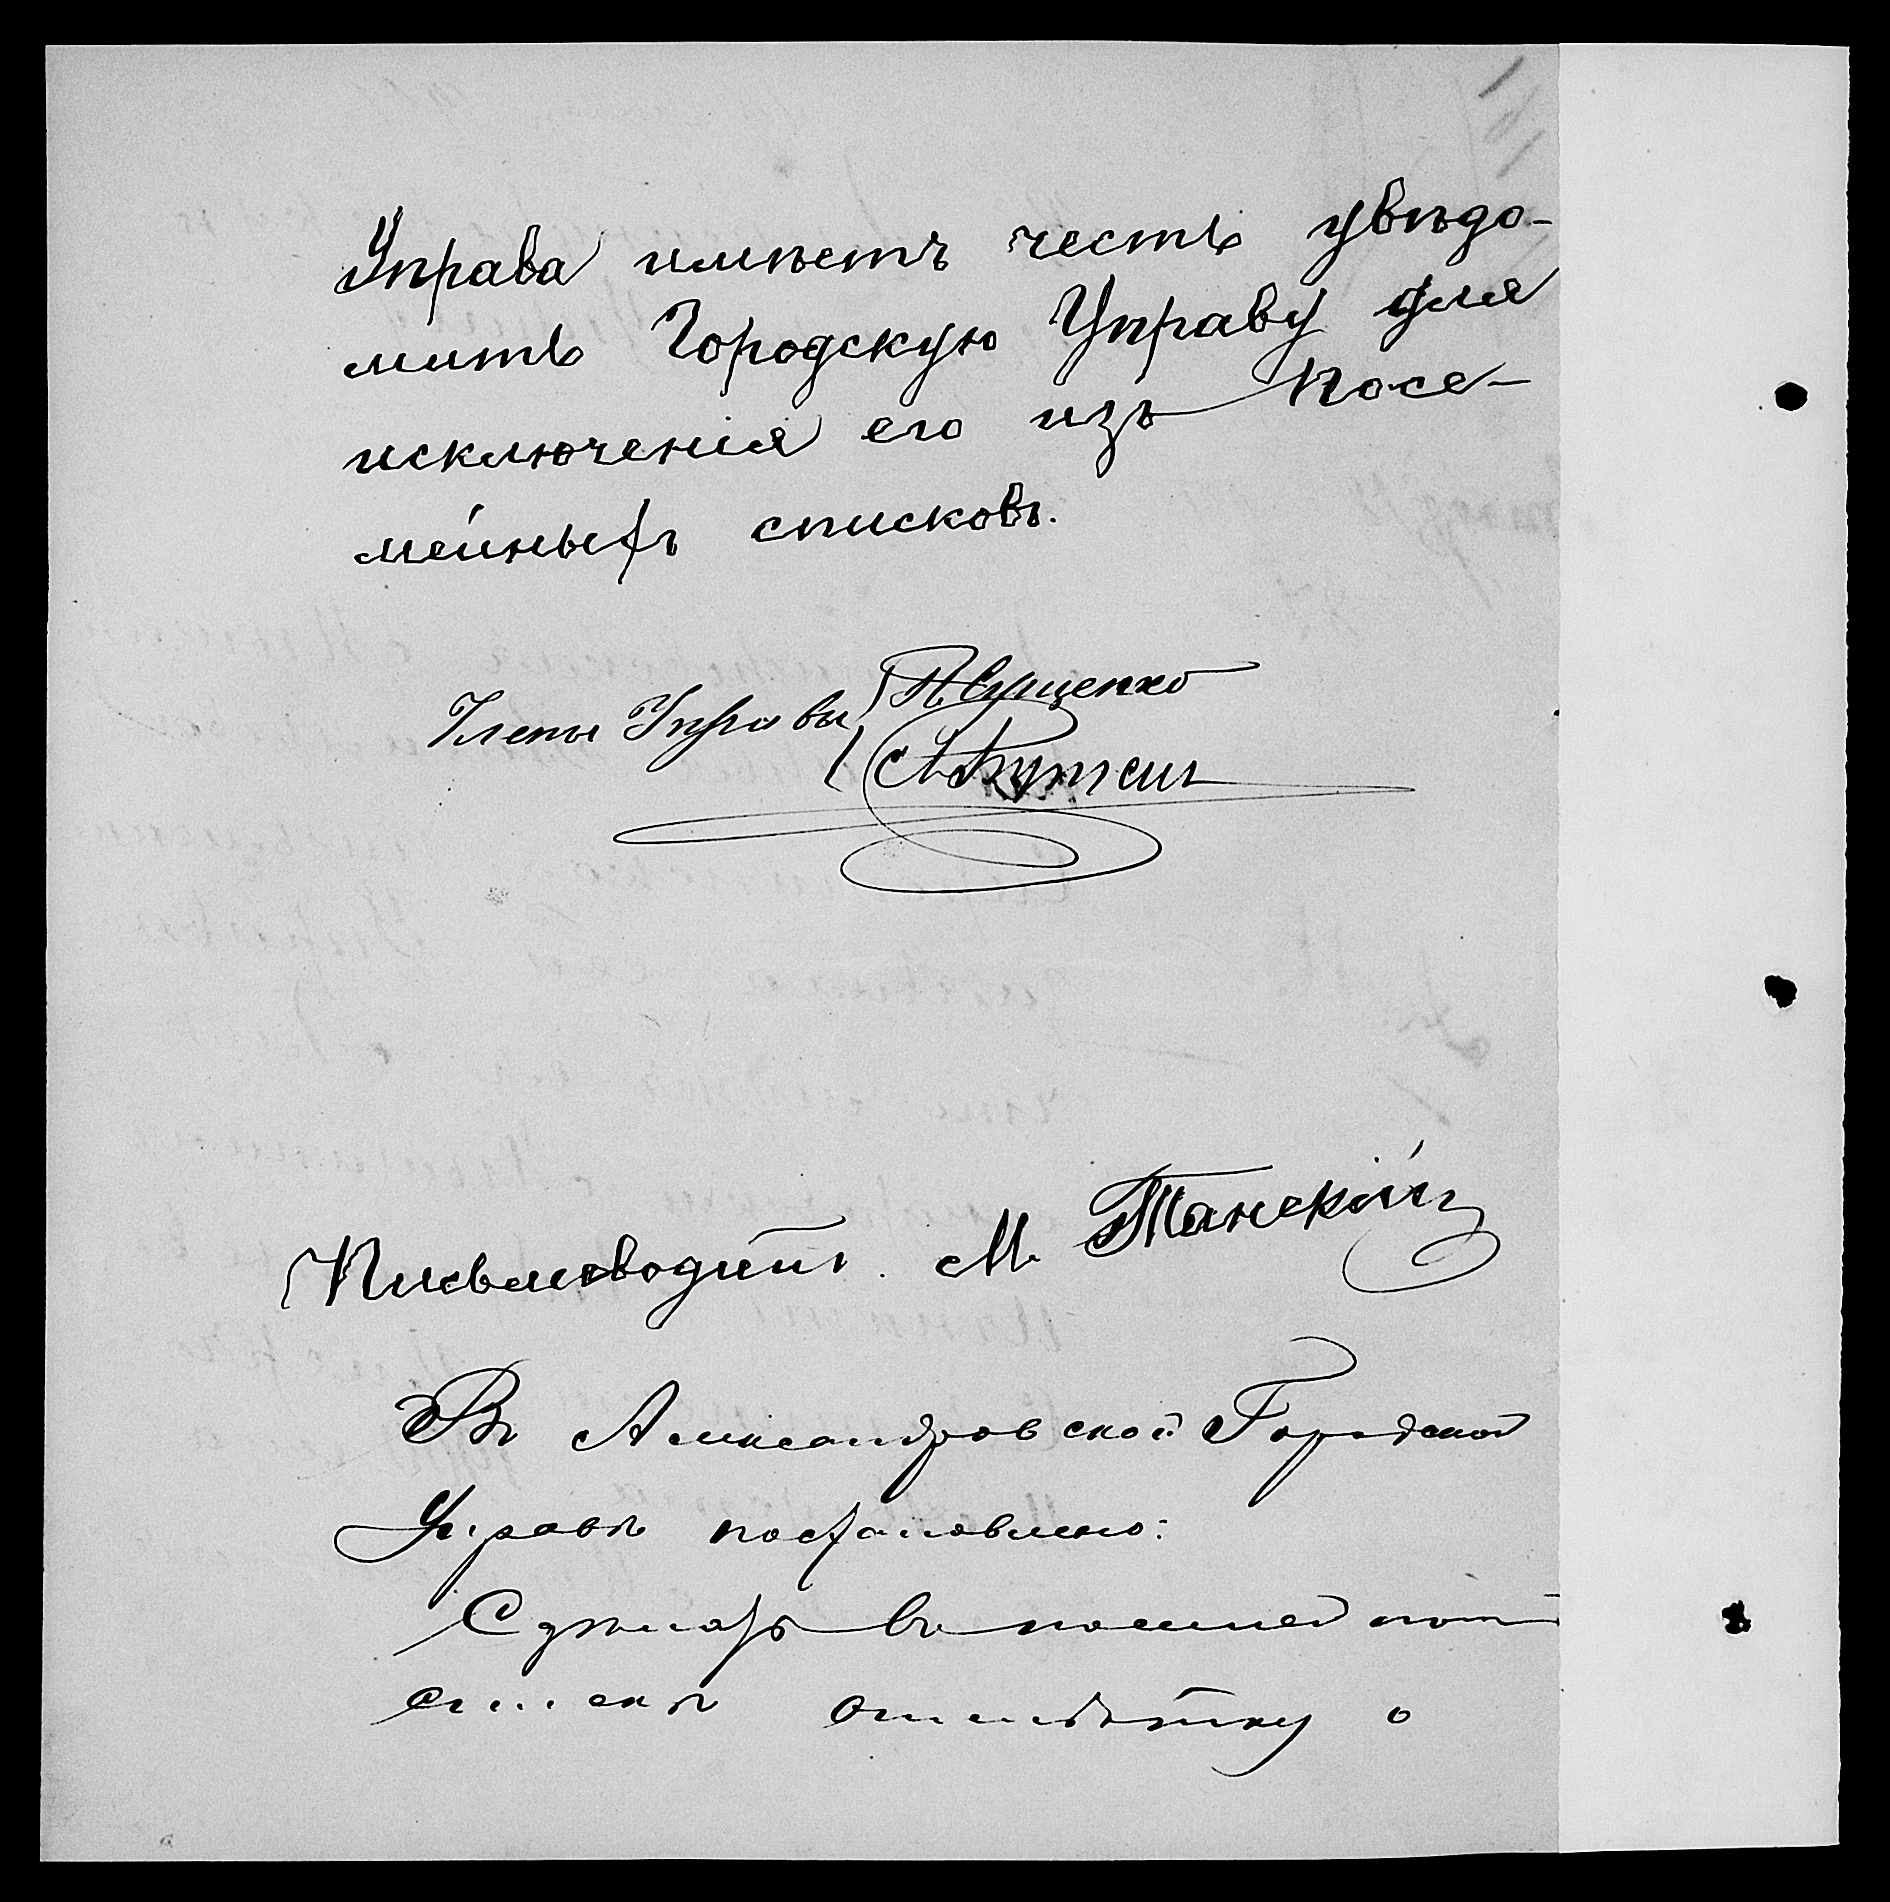 Управа имѣетъ честь увѣдо-
мить Городскую Управу для
исключенія его изъ посе-
мейныхъ списковъ.
Члены Управы П. Сущенко
Письмоводит. М. Танскій
Въ Александровской Городской
Управѣ постановлено:
Сдѣлать въ
отмѣтку о